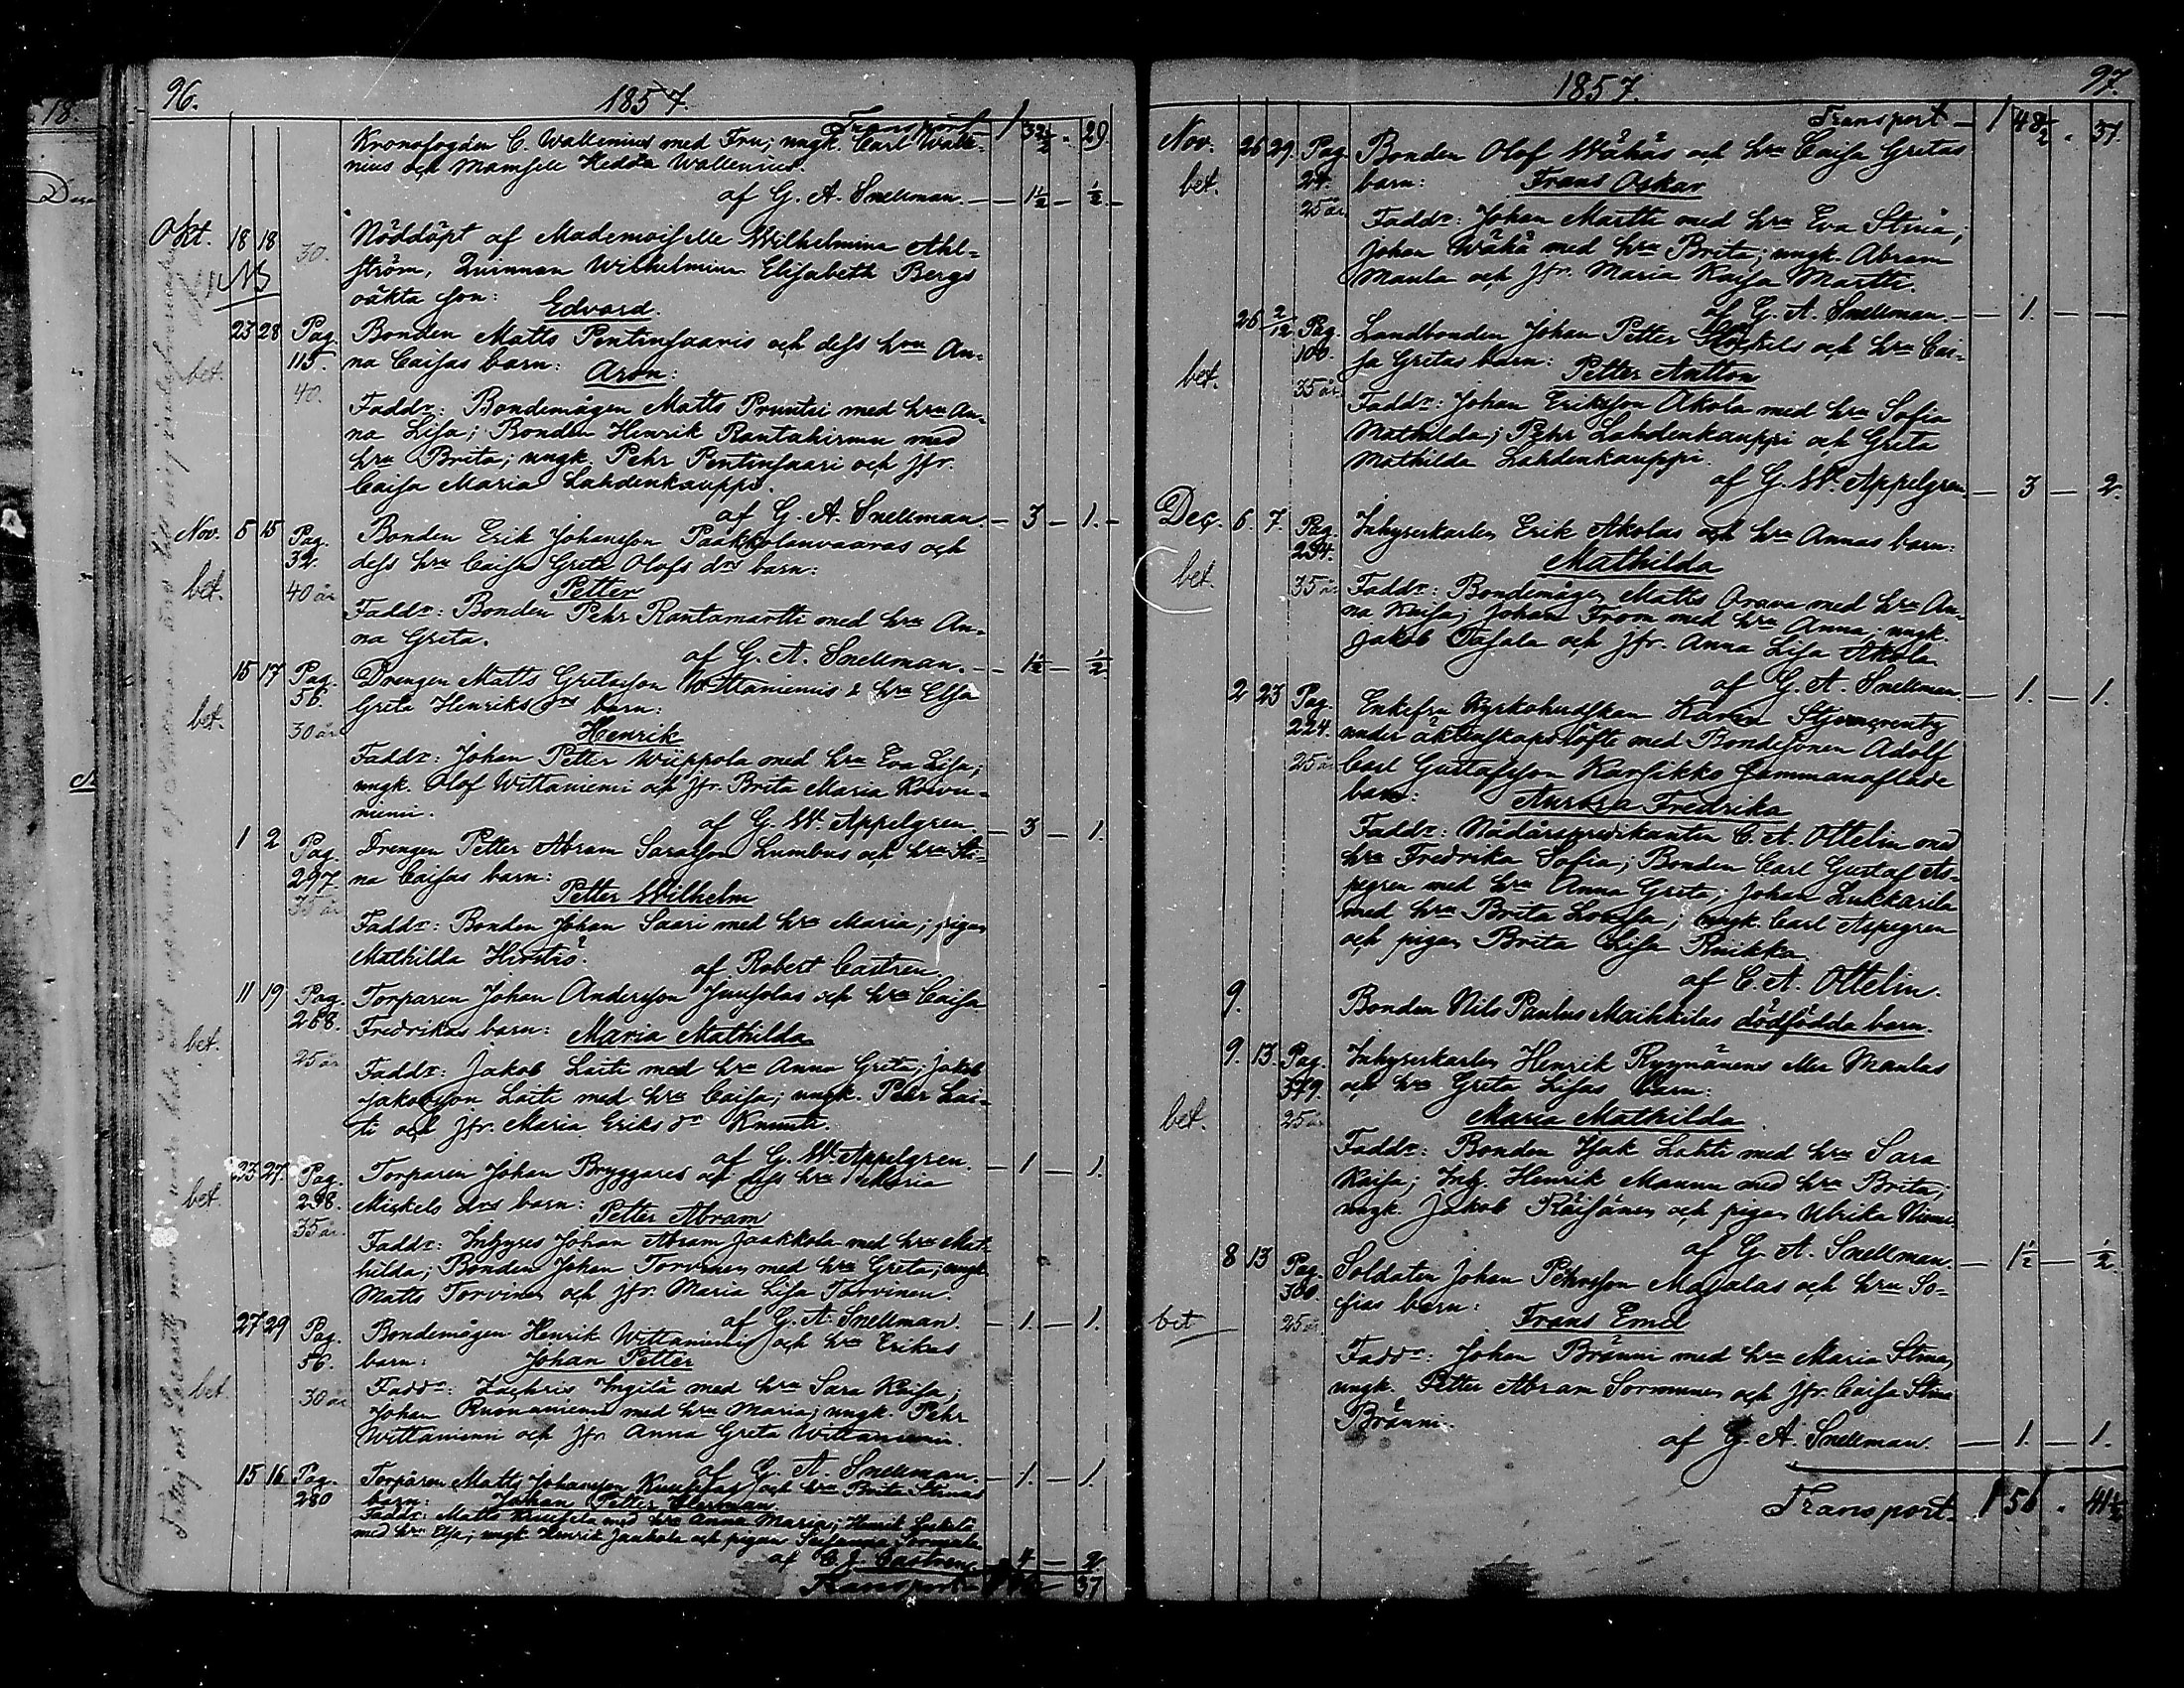 96.
1857.
Transport — 1 32½ „ 29.
Kronofogden C. Wallenius med Fru; ungk. Carl Walle-
nius och Mamsell Hedda Wallenius.
af G. A. Snellman. — 1½ — ½
Okt. 18 18 30. Nöddöpt af Mademoiselle Wilhelmina Ahl-
NB ström, Qvinnan Wilhelmina Elisabeth Bergs
oäkta son: Edvard.
23 28 Pag. Bonden Matts Pentinsaaris och dess hru An-
bet. 115. na Caisas barn: Aron:
40. Faddr: Bondemågen Matts Pruntsi med hru An-
na Lisa; Bonden Henrik Rantahirmu med
hru Brita; ungk. Pehr Pentinsaari och Jfr.
Caisa Maria Lahdenkauppi.
af G. A. Snellman. — 3 — 1.
Nov. 5 15 Pag. Bonden Erik Johansson Paakkolanvaaras och
32. dess hru Caisa Greta Olofs drs barn:
bet. 40 år Petter
Faddr: Bonden Pehr Rantamartti med hru An-
na Greta.
af G. A. Snellman. — 1½ — ½
15 17 Pag. Drengen Matts Gretasson Wittaniemis & hru Elsa
56. Greta Henriks drs barn:
bet. 30 år Henrik
Faddr: Johan Petter Wiippola med hru Eva Lisa;
ungk. Olof Wittaniemi och Jfr. Brita Maria Koivu-
niemi.
af G. W. Appelgren. — 3 — 1.
1 2 Pag. Drengen Petter Abram Sarasson Lumbus och hru Sti-
297. na Caisas barn:
35 år Petter Wilhelm
Faddr: Bonden Johan Saari med hru Maria; pigan
Mathilda Hirstiö.
af Robert Castren.
11 19 Pag. Torparen Johan Andersson Juusolas och hru Caisa
268. Fredrikas barn: Maria Mathilda
bet. 25 år Faddr: Jakob Laiti med hru Anna Greta; Jakob
Jakobsson Laiti med hru Caisa; ungk. Pehr Lai-
ti och Jfr. Maria Eriks dr Knuuti.
af G. W. Appelgren. — 1 — 1.
23 27. Pag. Torparen Johan Bryggares och dess hru Maria
bet. 298. Mickels drs barn: Petter Abram
35 år Faddr: Inhyses Johan Abram Jaakkola med hru Mat-
hilda; Bonden Johan Torvinen med hru Greta; ungk.
Matts Torvinen och Jfr. Maria Lisa Torvinen.
af G. A. Snellman. — 1. — 1.
27 29 Pag. Bondemågen Henrik Wittaniemis och hru Erikas
56. barn: Johan Petter
bet. 30 år Faddr: Zachris Ingilä med hru Sara Kaisa;
Johan Ruonaniemi med hru Maria; ungk. Pehr
Wittaniemi och Jfr Anna Greta Wittaniemi.
af G. A. Snellman. — 1. — 1.
15 16 Pag. Torparen Matts Johansson Kuuselas och hru Brita Stinas
280 barn: Johan Petter Herman
Faddr: Matts Kuusela med hru Anna Maria; Henrik
med hru Elsa; ungk. Henrik Jaakola och pigan Susanna
af C. J. Castren. 4 — 2
Transport 37
1857. 97.
Transport — 1 48½ „ 37.
Nov. 26 29. Pag. Bonden Olof Wähäs och hru Caisa Gretas
bet. 24. barn: Frans Oskar
25 år Faddr: Johan Martti med hru Eva Stina;
Johan Wähä med hru Brita; ungk. Abram
Maula och Jfr. Maria Kaisa Martti.
af G. A. Snellman. — 1. —
26 2/12 Pag. Landbonden Johan Petter och hru Cai-
100. sa Gretas barn: Petter Anton
bet. 35 år Faddr: Johan Eriksson Akola med hru Sofia
Mathilda; Pehr Lahdenkauppi och Greta
Mathilda Lahdenkauppi.
af G. W. Appelgren. — 3 — 2.
Dec. 6. 7. Pag. Inhyseskarlen Erik Akolas och hru Annas barn:
234. Mathilda
bet. 35 år Faddr: Bondemågen Matts Orava med hru An-
na Kaisa; Johan From med hru Anna, ungk.
Jakob Tasala och Jfr. Anna Lisa Akola
af G. A. Snellman. — 1. — 1.
2 23 Pag. Enkefru Kyrkoherdskan Karin Stjerncreutz
224. under äktenskapslöfte med Bondesonen Adolf
25 år Carl Gustafsson Karsikko sammanaflade
barn: Aurora Fredrika
Faddr: Nådårspredikanten C. A. Ottelin med
hru Fredrika Sofia; Bonden Carl Gustaf As-
pegren med hru Anna Greta; Johan Lukkarila
med hru Brita Lovisa; ungk. Carl Aspegren
och pigan Brita Lisa Ruikka.
af C. A. Ottelin.
9. Bonden Nils Paulus Maihkilas dödfödda barn.
9. 13 Pag. Inhyseskarlen Henrik Ryynänens eller Maulas
379. och hru Greta Lisas barn:
bet. 25 år Maria Mathilda
Faddr: Bonden Isak Lahti med hru Sara
Kaisa; Inh. Henrik Mannu med hru Brita;
ungk. Jakob Räisänen och pigan Ulrika Niemi
af G. A. Snellman. — 1½ — ½
8 13 Pag. Soldaten Johan Pehrsson Majalas och hru So-
380. fias barn:
bet 25 år Frans Emel
Faddr: Johan Bränni med hru Maria Stina;
ungk. Petter Abram Sormunen och Jfr. Caisa Stina
Bränni.
af G. A. Snellman. — 1. — 1.
Transport. 1 56 „ 41½